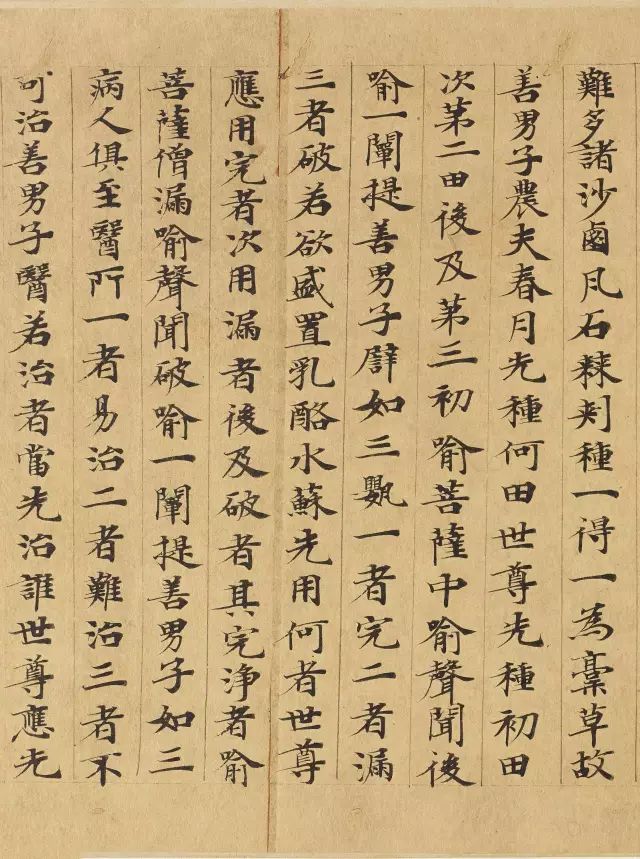 難多諸沙鹵凡石棘刾種一得一為藁草故
善男子農夫春月先種何田世尊先種初田
次第二田後及第三初喻菩薩中喻聲聞後
喻一闡提善男子辟如三甖一者完二者漏
三者破若欲盛置乳酪水蘇先用何者世尊
應用完者次用漏者後及破者其完淨者喻
菩薩僧漏喻聲聞破喻一闡提善男子如三
病人俱至醫所一者易治二者難治三者不
可治善男子醫若治者當先治誰世尊應先